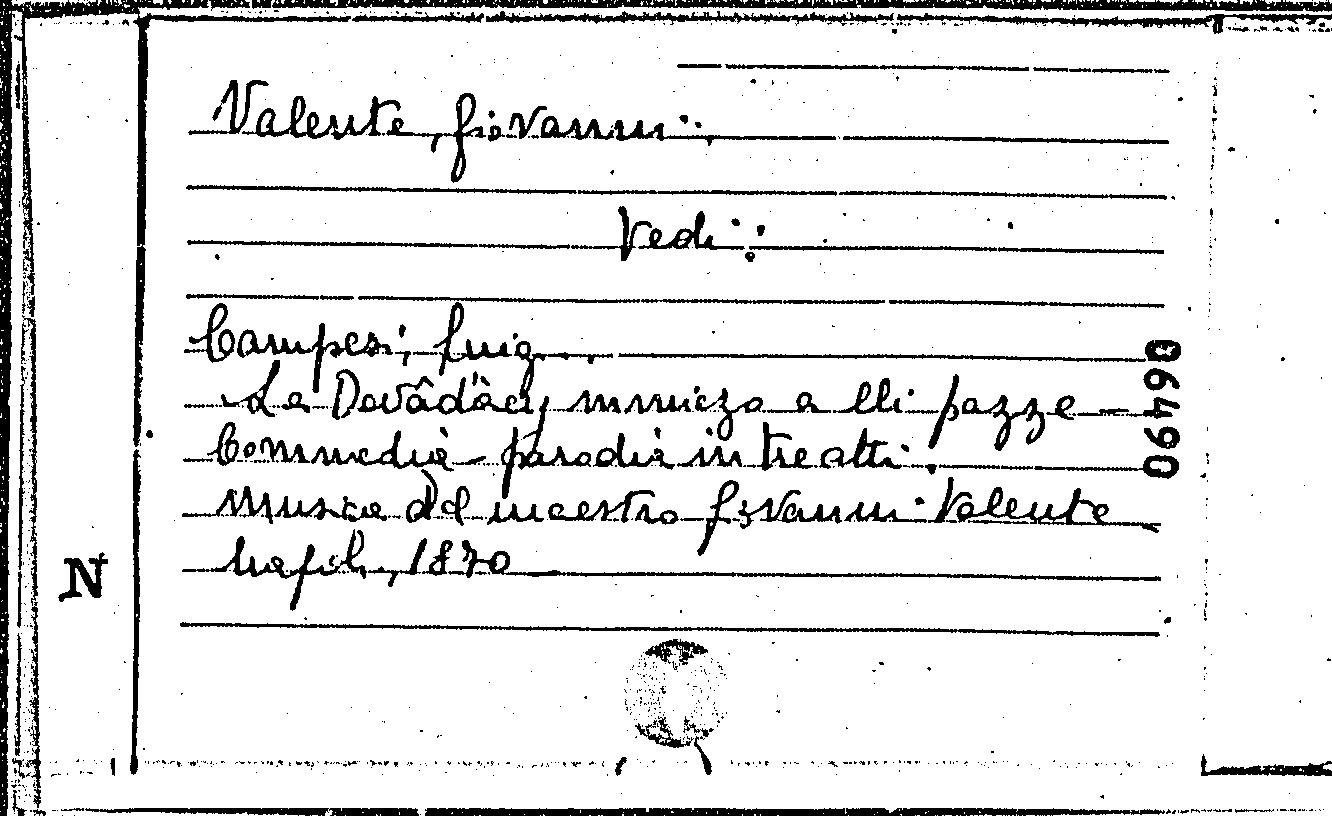 Valente, Giovanni.
Vedi:
Campesi, Luigi.
La Davâdàcy mmiezo a lli pazze –
Commedia – parodia in tre atti.
Musica del maestro Giovanni Valente
Napoli, 1870
N
06490